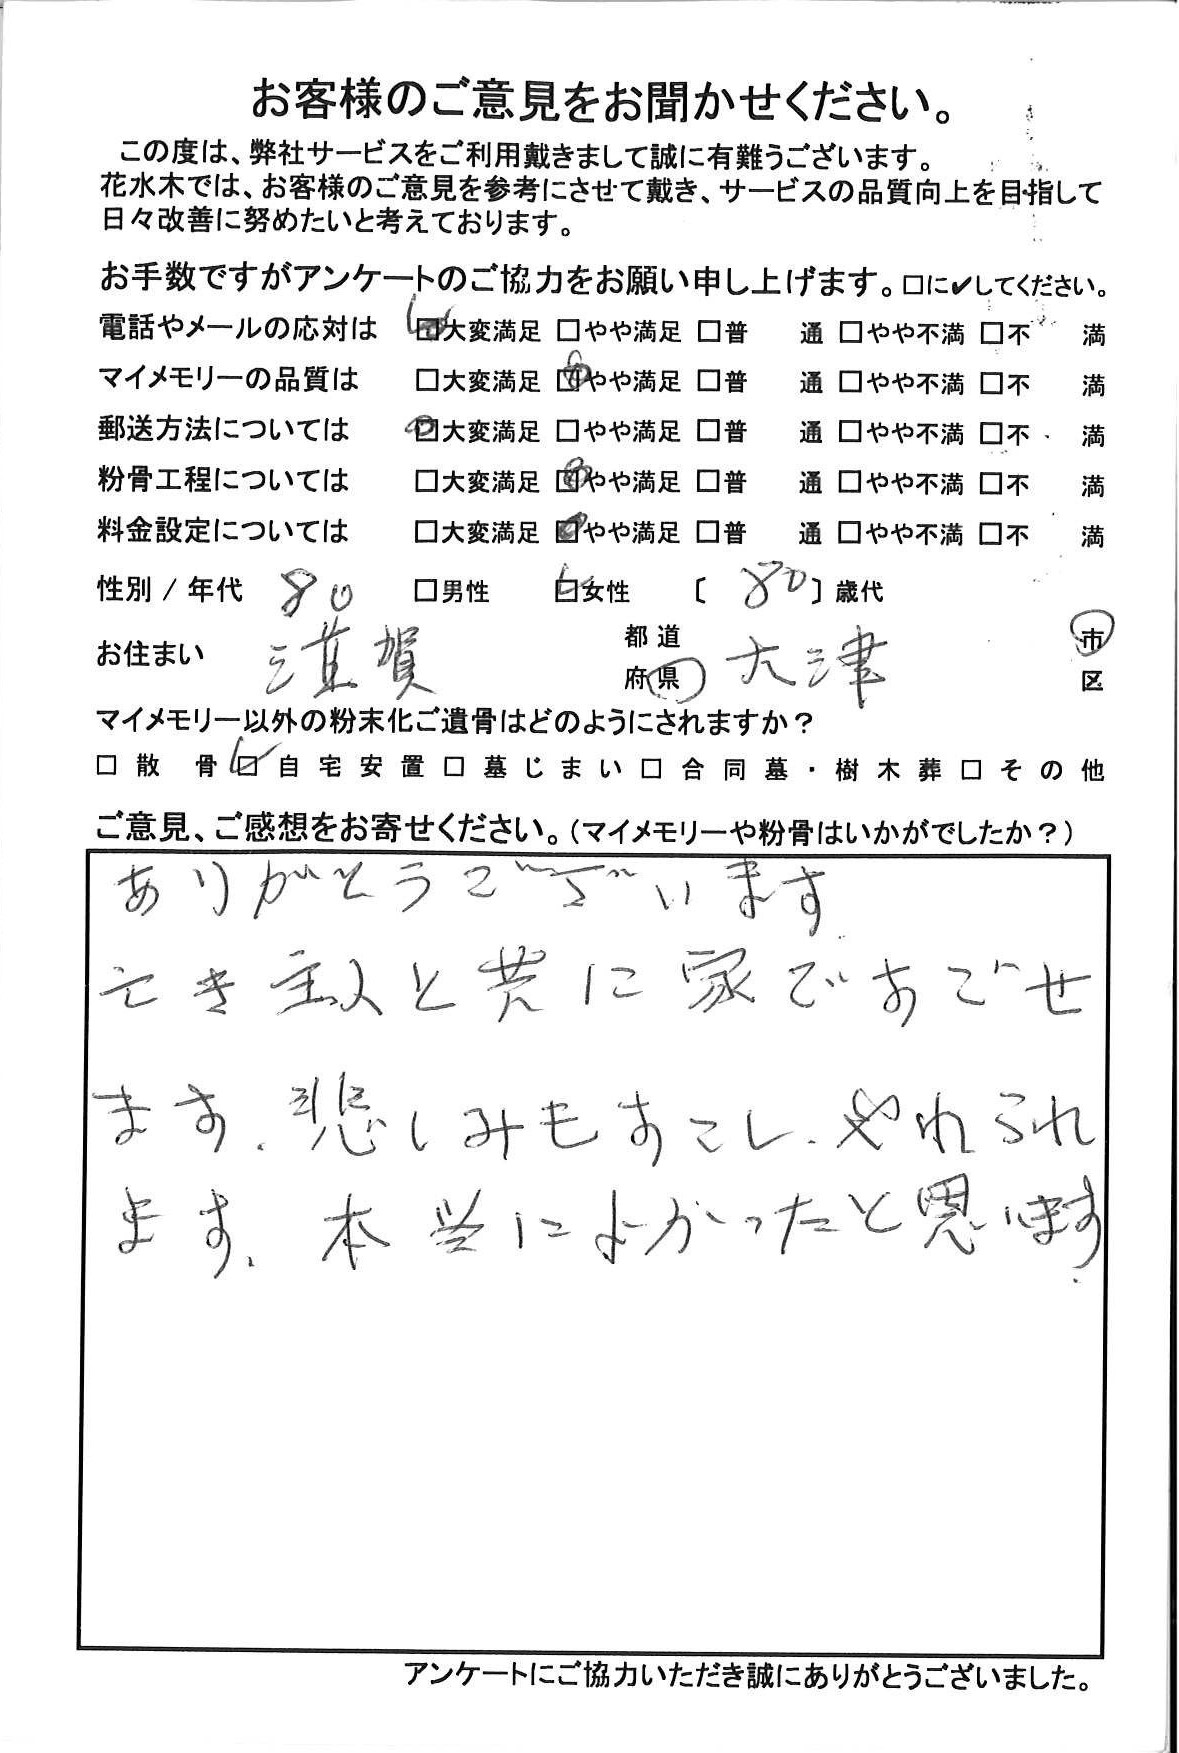 お客様のご意見をお聞かせください。
この度は、弊社サービスをご利用戴きまして誠に有難うございます。
花水木では、お客様のご意見を参考にさせて戴き、サービスの品質向上を目指して
日々改善に努めたいと考えております。
お手数ですがアンケートのご協力をお願い申し上げます。□に✔してください。
電話やメールの応対は ☑大変満足 □やや満足 □普 通 □やや不満 □不 満
マイメモリーの品質は □大変満足 ☑やや満足 □普 通 □やや不満 □不 満
郵送方法については ☑大変満足 □やや満足 □普 通 □やや不満 □不 満
粉骨工程については □大変満足 ☑やや満足 □普 通 □やや不満 □不 満
料金設定については □大変満足 ☑やや満足 □普 通 □やや不満 □不 満
性別 / 年代 80 □男性 ☑女性 〔 80 〕歳代
お住まい 滋賀 都道府県 大津 市区
マイメモリー以外の粉末化ご遺骨はどのようにされますか？
□散 骨 ☑自宅安置 □墓じまい □合同墓・樹木葬 □その他
ご意見、ご感想をお寄せください。（マイメモリーや粉骨はいかがでしたか？）
ありがとうございます
亡き主人と共に家ですごせ
ます、悲しみもすこし、やわらられ
ます、本当によかったと思います
アンケートにご協力いただき誠にありがとうございました。